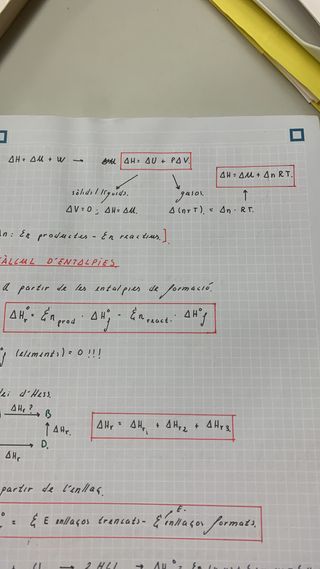 ΔH = ΔU + W → ΔH = ΔU + PΔV.
ΔH = ΔU + Δn RT.
sòlids/líquids. gasos.
ΔV = 0 ; ΔH = ΔU. Δ(nrT). = Δn · RT.
Δn: Σn productes - Σn reactius].
CÀLCUL D'ENTALPIES.
A partir de les entalpies de formació
ΔHr° = Σn prod · ΔH°f - Σn react. · ΔH°f
(elements) = 0 !!!
Llei d'Hess.
ΔHr? → B
↑ ΔHr.
→ D.
ΔHr
ΔHr = ΔHr1 + ΔHr2 + ΔHr3.
partir de l'enllaç.
= Σ E enllaços trencats - Σ E enllaços formats.
→ 2 HCl → ΔH°=